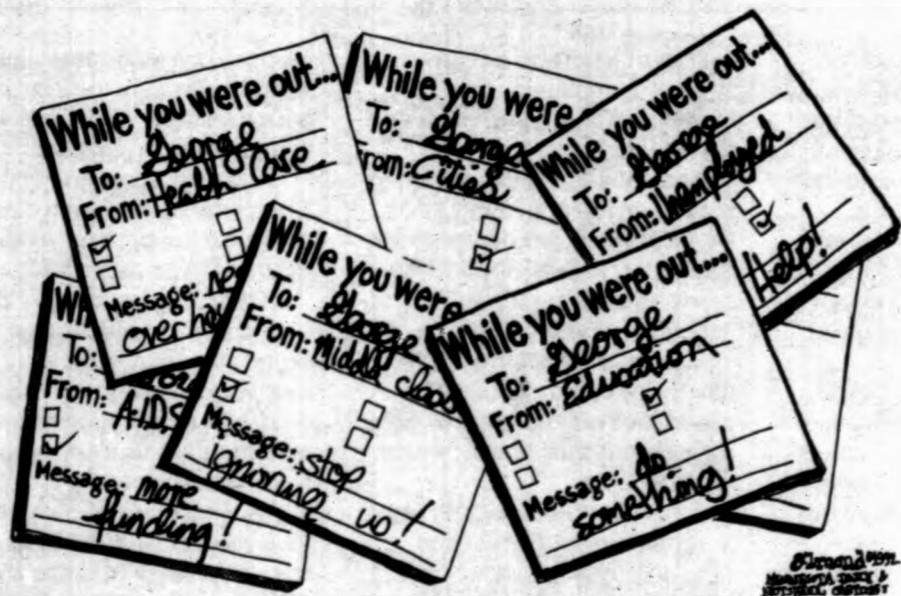 While you were out...
To: George
From: Health Care
Message:
overhau
While you were
To: George
From: Cities
While you were out...
To: George
From: Unemployed
Help!
Wh
To:
From: AIDS
Message: more
funding!
While you were
To: George
From: Middle Class
Message: stop
ignoring us!
While you were out...
To: George
From: Education
Message: do
something!
MINNESOTA DAILY &